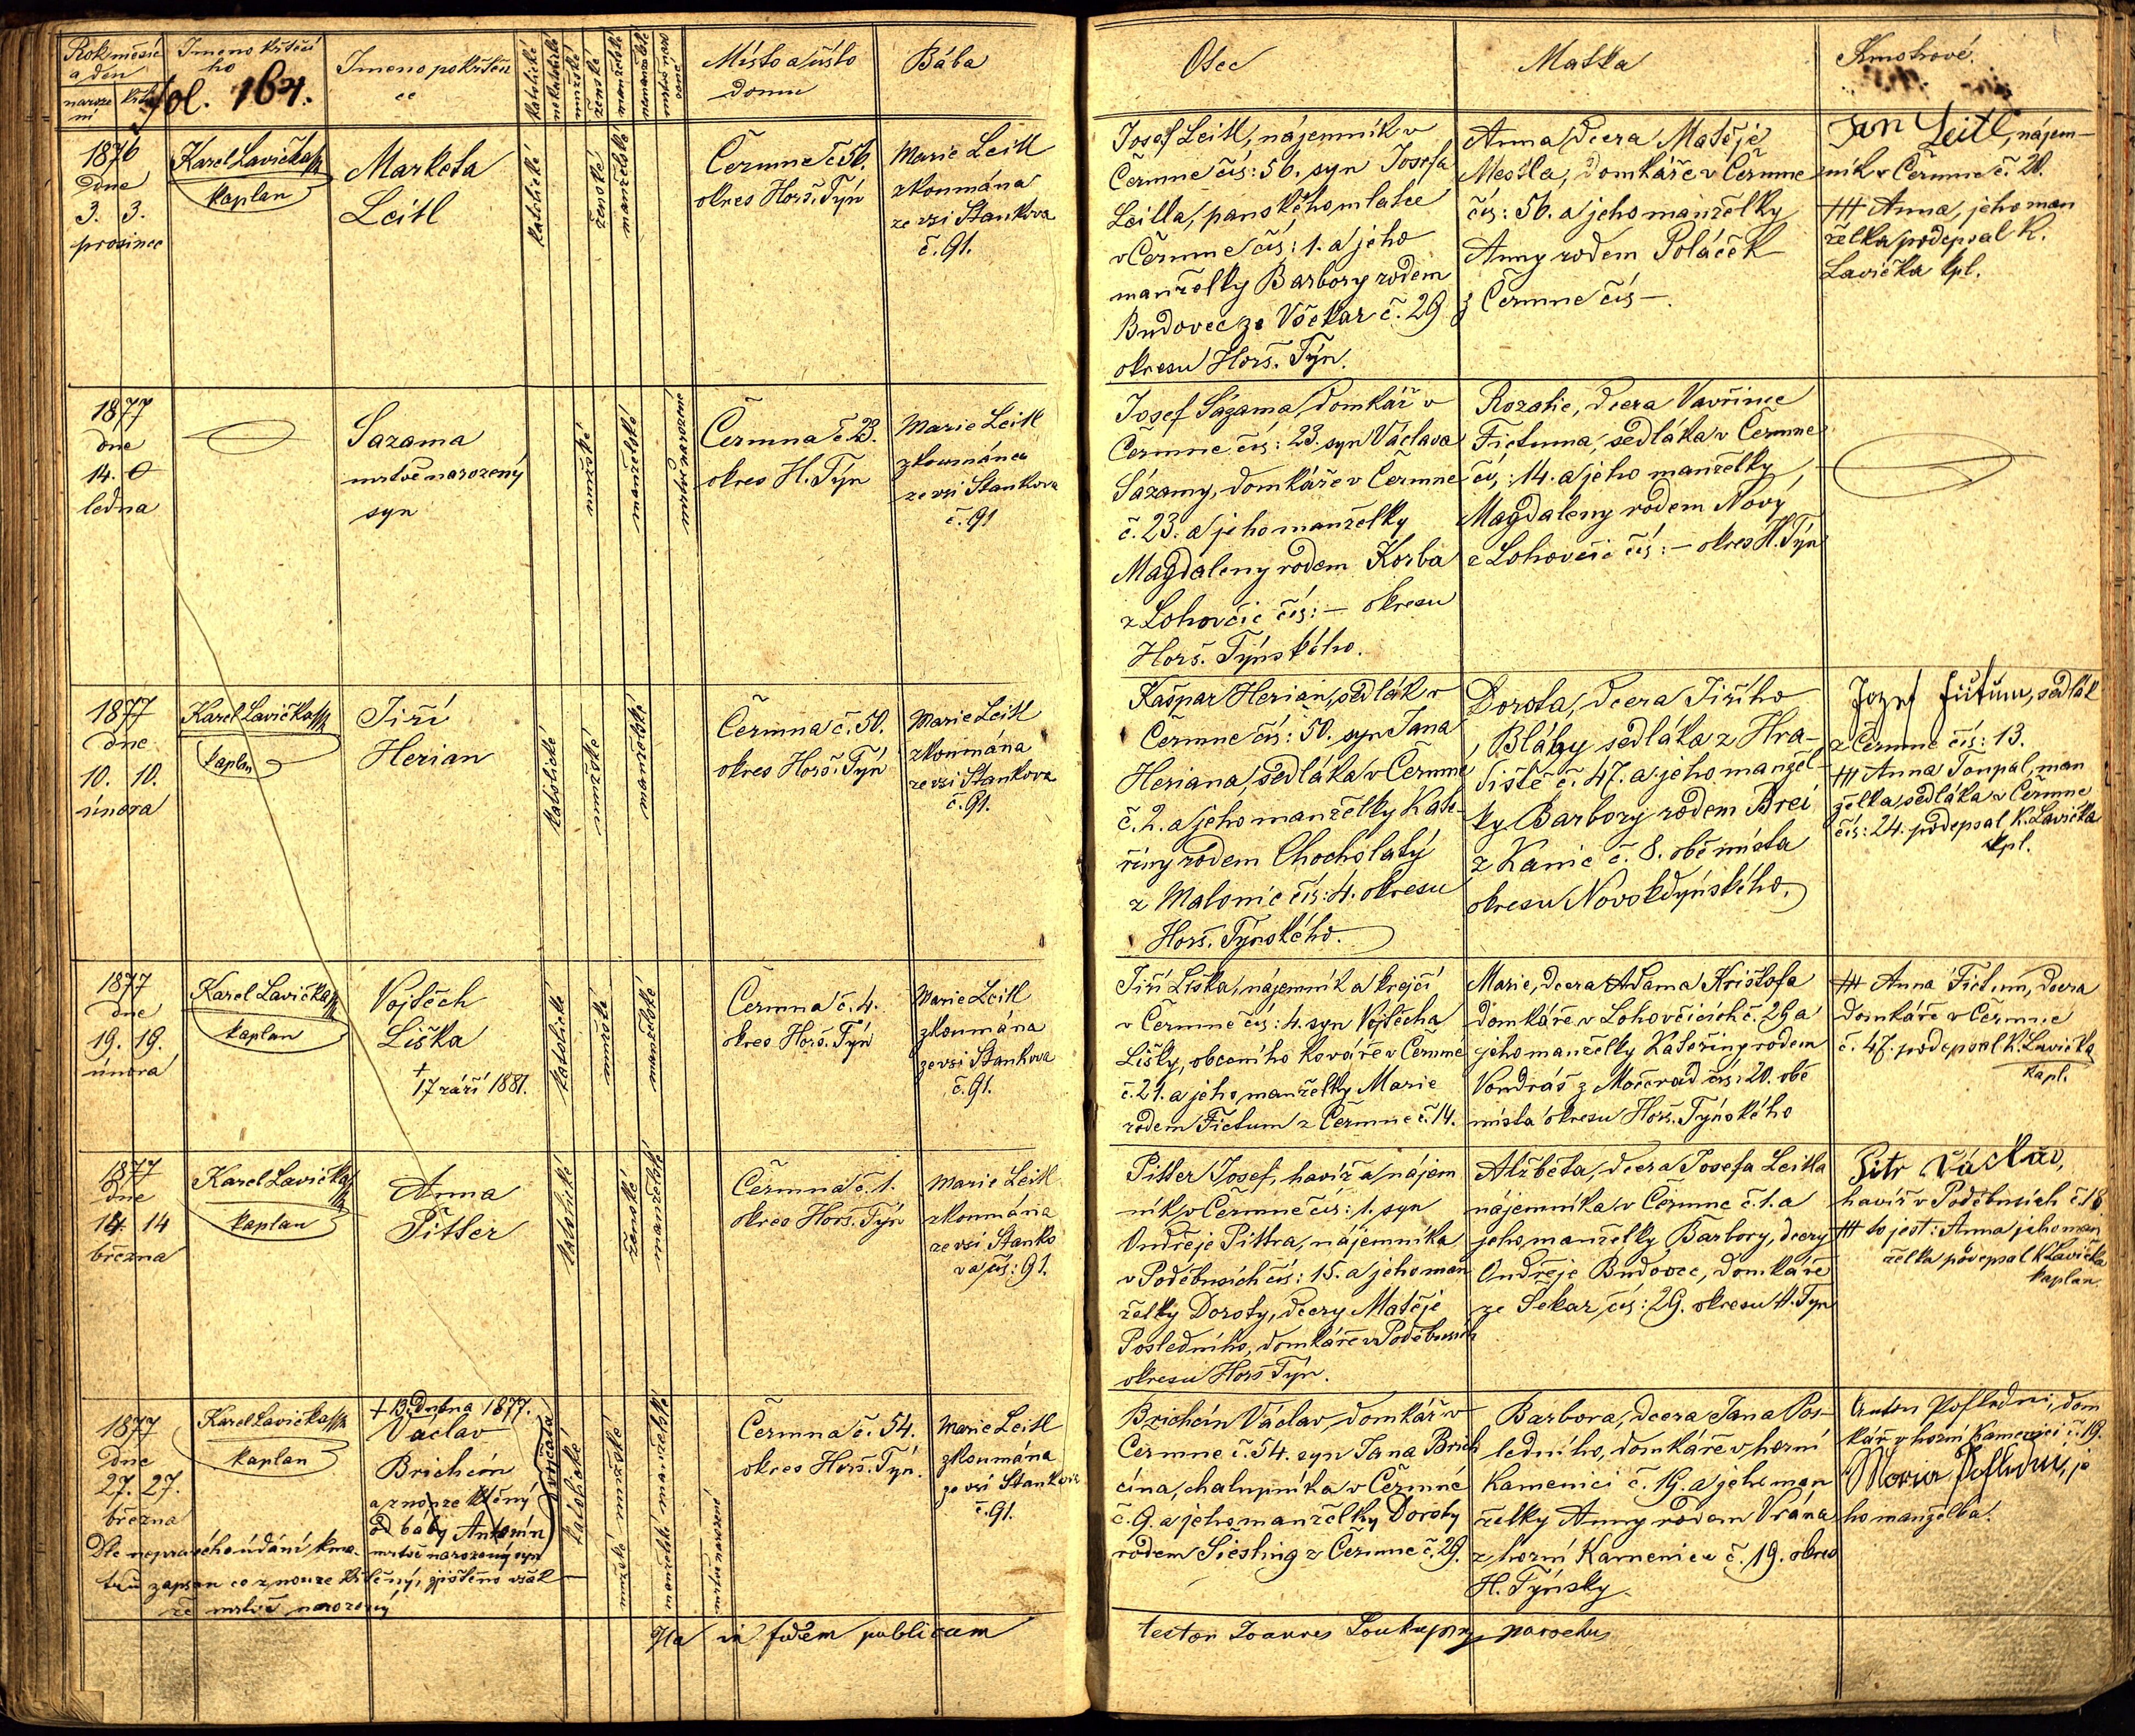 Rok měsíc
a den
naroze
ní
křtu
Jmeno křtící
ho
fol. 164.
Jmeno pokřtěn
ce
katolické
nekatolické
mužské
ženské
manželské
nemanželské
mrtvě naro
zené
Místo a číslo
domu
Bába
Otec
Matka
Kmotrové.
1876
dne
3. 3.
prosince
Karel Lavička
kaplan
Marketa
Leitl
katolické
ženské
manželské
Čermna č 56.
okres Horš. Týn
Marie Leitl
zkoumána
ze vsi Stankova
č. 91.
Josef Leitl, nájemník v
Čermne čís: 56. syn Josefa
Leitla, panského mlatce
v Čermne čís: 1. a jeho
manželky Barbory rodem
Budovec ze Vočkar č. 29
okresu Horš. Týn.
Anna, dcera Matěje
domkáře v Čermne
čís: 56. a jeho manželky
Anny rodem Poláček
z Čermne čís –.
Jan Leitl, nájem-
ník v Čermne č. 20.
+++ Anna, jeho man
želka podepsal K.
Lavička kpl.
1877
dne
14. 0
ledna
Sazama
mrtvě narozený
syn
mužské
manželské
mrtvě narozené
Čermna č 23.
okres H. Týn
Marie Leitl
zkoumána
ze vsi Stankova
č. 91
Josef Sázama, domkář v
Čermne čís: 23. syn Václava
Sázamy, domkáře v Čermne
č. 23. a jeho manželky
Magdaleny rodem Korba
z Lohovčic čís: – okresu
Horš. Týnského.
Rozalie, dcera Vavřince
Fictuma, sedláka v Čermne
čís: 14. a jeho manželky
Magdaleny rodem Nový
z Lohovčic čís: – okres H. Týn
1877
dne
10. 10.
února
Karel Lavička
kaplan
Jiří
Herian
katolické
mužské
manželské
Čermna č. 50.
okres Horš. Týn
Marie Leitl
zkoumána
ze vsi Stankova
č. 91.
Kašpar Herian, sedlák v
Čermne čís: 50. syn Jana
Heriana, sedláka v Čermne
č. 2. a jeho manželky Kate-
řiny rodem Chocholatý
z Malonic čís: 4. okresu
Horš. Týnského.
Dorota, dcera Jiřího
Bláhy sedláka z Hra-
diště č. 47. a jeho manžel-
ky Barbory rodem Brei
z Kanic č. 8. obě místa
okresu Novokdyňského.
Jozef Fictum, sedlák
z Čermne čís: 13.
+++ Anna Toupal, man
želka sedláka z Čermne
čís: 24. podepsal K. Lavička
kpl.
1877
dne
19. 19.
února
Karel Lavička
kaplan
Vojtěch
Liška
†
17 září 1881.
katolické
mužské
manželské
Čermna č. 4.
okres Horš. Týn
Marie Leitl
zkoumána
ze vsi Stankova
č. 91.
Jiří Liška, nájemník a krejčí
v Čermne čís: 4. syn Vojtěcha
Lišky, obecního kováře v Čermne
č. 21. a jeho manželky Marie
rodem Fictum z Čermne č. 14.
Marie, dcera Adama Krištofa
domkáře v Lohovčicích č. 29 a
jeho manželky Kateřiny rodem
Vondráš z Močerad čís: 20. obě
místa okresu Horš. Týnského
+++ Anna Fictum, dcera
domkáře v Čermne
č. 47. podepsal K. Lavička
kapl.
1877
dne
14. 14
března
Karel Lavička
kaplan
Anna
Pitter
katolické
ženské
manželské
Čermna č. 1.
okres Horš. Týn
Marie Leitl
zkoumána
ze vsi Stanko
va čís: 91.
Pitter Josef, havíř a nájem
ník v Čermne čís: 1. syn
Ondřeje Pittra, nájemníka
v Poděbusích čís: 15. a jeho man
želky Doroty, dcery Matěje
Posledního, domkáře v Poděbusích
okresu Horš Týn.
Alžběta, dcera Josefa Leitla
nájemníka v Čermne č. 1. a
jeho manželky Barbory, dcery
Ondřeje Budovec, domkáře
ze Sekar, čís: 29. okresu H. Týn
Pitr Václav,
havíř v Poděbusích č. 18.
+++ to jest: Anna jeho man
želka podepsal K. Lavička
kaplan.
1877
dne
27. 27.
března
Karel Lavička
kaplan
† 13. Dubna 1877.
Vaclav
Brichcín
a z nouze křtěný
od báby Antonín
mrtvě narozený syn
dvojčata
Dle nepravého údání kmo-
trů zapsan co z nouze křtěný, zjištěno však
že mrtvě narozený
katolické
mužské mužské
manželské manželské
mrtvě narozené
Čermna č. 54.
okres Horš. Týn.
Marie Leitl
zkoumána
ze vsi Stankova
č. 91.
Brichcín Václav, domkář v
Čermne č. 54. syn Jana Brich
cína, chalupníka v Čermné
č. 9. a jeho manželky Doroty
rodem Siesling z Čermne č. 29.
Barbora, dcera Jana Pos-
ledního, domkáře v horní
Kamenici č. 19. a jeho man
želky Anny rodem Vrána
z horní Kamenice č. 19. okres
H. Týnsky
Anton Posledni, dom
kář v horní Kamenici č. 19.
Moria Posledni, je
ho manželka.
Ita in fidem publicam
testor Joannes Loukup parochus